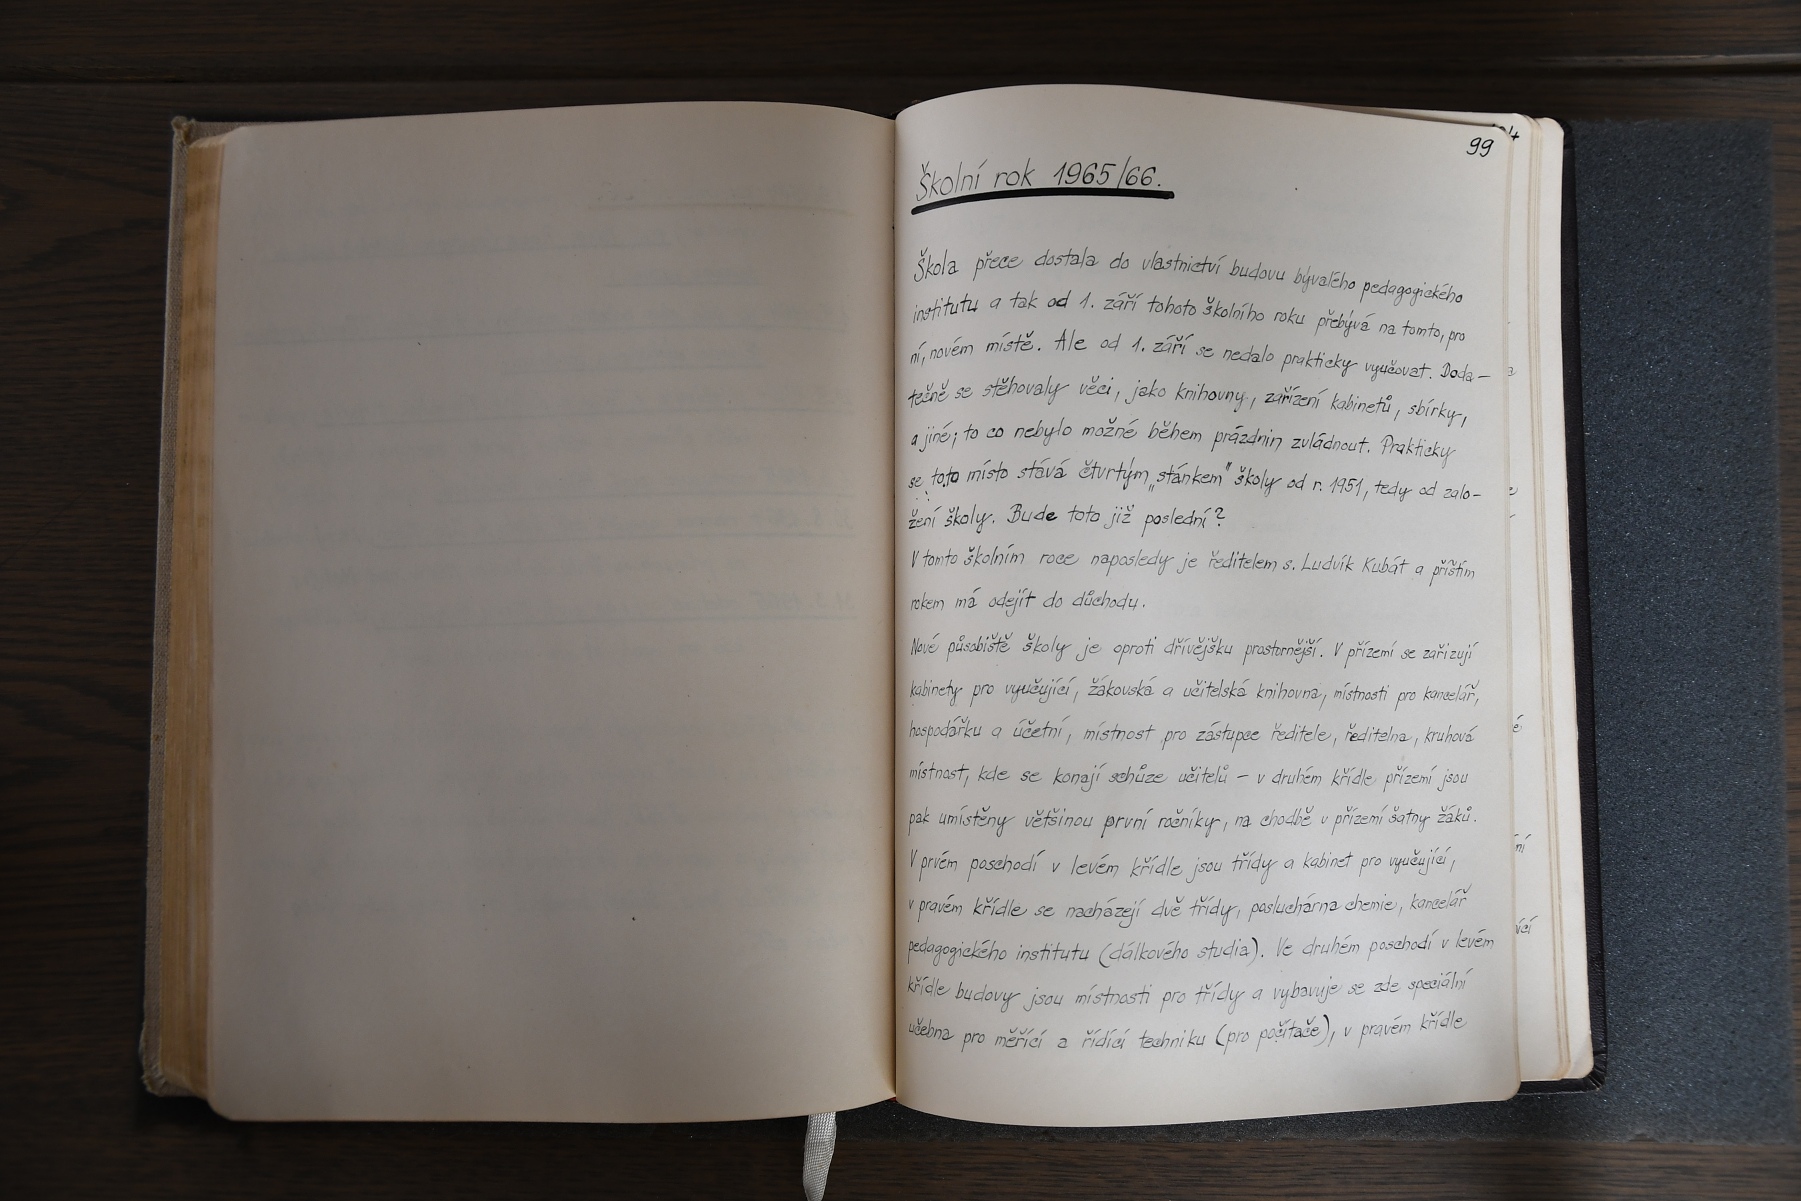 99
Školní rok 1965/66.
Škola přece dostala do vlastnictví budovu bývalého pedagogického
institutu a tak od 1. září tohoto školního roku přebývá na tomto, pro
ní, novém místě. Ale od 1. září se nedalo prakticky vyučovat. Doda-
tečně se stěhovaly věci, jako knihovny, zařízení kabinetů, sbírky,
a jiné; to co nebylo možné během prázdnin zvládnout. Prakticky
se toto místo stává čtvrtým „stánkem" školy od r. 1951, tedy od zalo-
žení školy. Bude toto již poslední?
V tomto školním roce naposledy je ředitelem s. Ludvík Kubát a příštím
rokem má odejít do důchodu.
Nové působiště školy je oproti dřívějšku prostornější. V přízemí se zařizují
kabinety pro vyučující, žákovská a učitelská knihovna, místnosti pro kancelář,
hospodářku a účetní, místnost pro zástupce ředitele, ředitelna, kruhová
místnost, kde se konají schůze učitelů – v druhém křídle přízemí jsou
pak umístěny většinou první ročníky, na chodbě v přízemí šatny žáků.
V prvém poschodí v levém křídle jsou třídy a kabinet pro vyučující,
v pravém křídle se nacházejí dvě třídy, posluchárna chemie, kancelář
pedagogického institutu (dálkového studia). Ve druhém poschodí v levém
křídle budovy jsou místnosti pro třídy a vybavuje se zde speciální
učebna pro měřící a řídící techniku (pro počítače), v pravém křídle